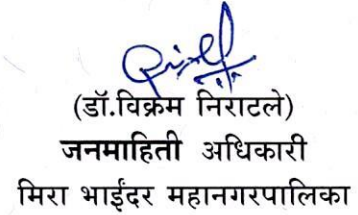 (डॉ.विक्रम निराटले)
जनमाहिती अधिकारी
मिरा भाईंदर महानगरपालिका